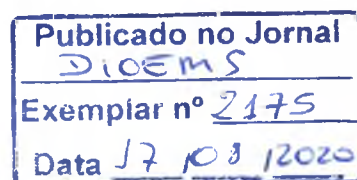 Publicado no Jornal
DIOEMS
Exemplar nº 2175
Data 17 /08 /2020